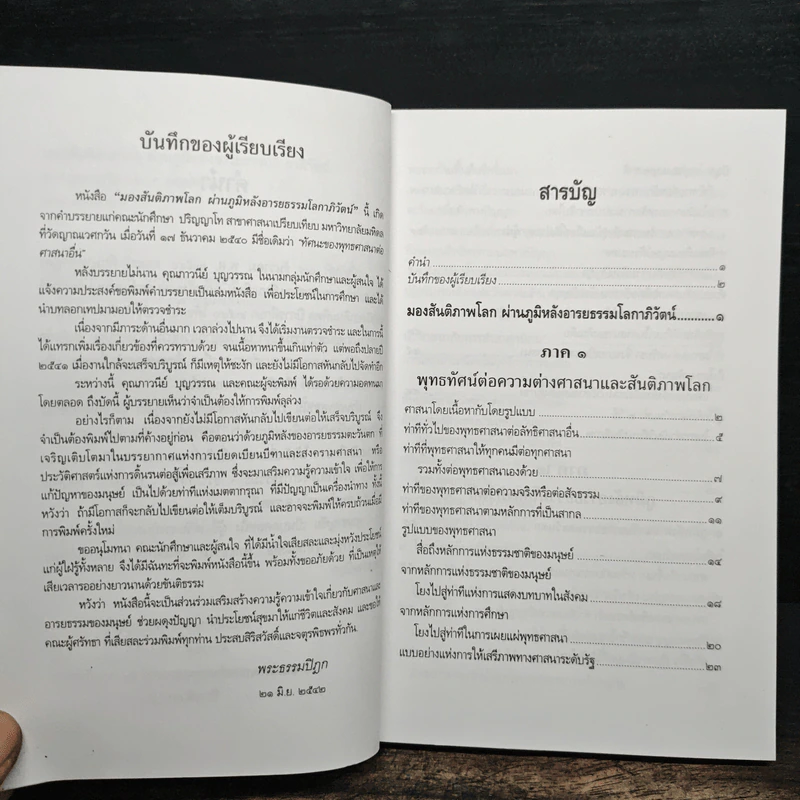 บันทึกของผู้เรียบเรียง
หนังสือ “มองสันติภาพโลก ผ่านภูมิหลังอารยธรรมโลกาภิวัตน์” นี้ เกิด
จากคำบรรยายแก่คณะนักศึกษา ปริญญาโท สาขาศาสนาเปรียบเทียบ มหาวิทยาลัยมหิดล
ที่วัดญาณเวศกวัน เมื่อวันที่ ๑๗ ธันวาคม ๒๕๔๐ มีชื่อเดิมว่า “ทัศนะของพุทธศาสนาต่อ
ศาสนาอื่น”
หลังบรรยายไม่นาน คุณภาวนีย์ บุญวรรณ ในนามกลุ่มนักศึกษาและผู้สนใจ ได้
แจ้งความประสงค์ขอพิมพ์คำบรรยายเป็นเล่มหนังสือ เพื่อประโยชน์ในการศึกษา และได้
นำบทลอกเทปมามอบให้ตรวจชำระ
เนื่องจากมีภาระด้านอื่นมาก เวลาล่วงไปนาน จึงได้เริ่มงานตรวจชำระ และในการนี้
ได้แทรกเพิ่มเรื่องเกี่ยวข้องที่ควรทราบด้วย จนเนื้อหาหนาขึ้นเกินเท่าตัว แต่พอถึงปลายปี
๒๕๔๑ เมื่องานใกล้จะเสร็จบริบูรณ์ ก็มีเหตุให้ชะงัก และยังไม่มีโอกาสหันกลับไปจัดทำอีก
ระหว่างนี้ คุณภาวนีย์ บุญวรรณ และคณะผู้จะพิมพ์ ได้รอด้วยความอดทนมา
โดยตลอด ถึงบัดนี้ ผู้บรรยายเห็นว่าจำเป็นต้องให้การพิมพ์ลุล่วง
อย่างไรก็ตาม เนื่องจากยังไม่มีโอกาสหันกลับไปเขียนต่อให้เสร็จบริบูรณ์ จึง
จำเป็นต้องพิมพ์ไปตามที่ค้างอยู่ก่อน คือตอนว่าด้วยภูมิหลังของอารยธรรมตะวันตก ที่
เจริญเติบโตมาในบรรยากาศแห่งการเบียดเบียนบีฑาและสงครามศาสนา หรือ
ประวัติศาสตร์แห่งการดิ้นรนต่อสู้เพื่อเสรีภาพ ซึ่งจะมาเสริมความรู้ความเข้าใจ เพื่อให้การ
แก้ปัญหาของมนุษย์ เป็นไปด้วยท่าทีแห่งเมตตากรุณา ที่มีปัญญาเป็นเครื่องนำทาง ทั้งนี้
หวังว่า ถ้ามีโอกาสก็จะกลับไปเขียนต่อให้เต็มบริบูรณ์ และอาจจะพิมพ์ให้ครบถ้วนเมื่อมี
การพิมพ์ครั้งใหม่
ขออนุโมทนา คณะนักศึกษาและผู้สนใจ ที่ได้มีน้ำใจเสียสละและมุ่งหวังประโยชน์
แก่ผู้ใฝ่รู้ทั้งหลาย จึงได้มีฉันทะที่จะพิมพ์หนังสือนี้ขึ้น พร้อมทั้งขออภัยด้วย ที่เป็นเหตุให้
เสียเวลารออย่างยาวนานด้วยขันติธรรม
หวังว่า หนังสือนี้จะเป็นส่วนร่วมเสริมสร้างความรู้ความเข้าใจเกี่ยวกับศาสนาและ
อารยธรรมของมนุษย์ ช่วยผดุงปัญญา นำประโยชน์สุขมาให้แก่ชีวิตและสังคม และขอให้
คณะผู้ศรัทธา ที่เสียสละร่วมพิมพ์ทุกท่าน ประสบสิริสวัสดิ์และจตุรพิธพรทั่วกัน.
พระธรรมปิฎก
๒๑ มิ.ย. ๒๕๔๒
สารบัญ
คำนำ ๑
บันทึกของผู้เรียบเรียง ๒
มองสันติภาพโลก ผ่านภูมิหลังอารยธรรมโลกาภิวัตน์ ๑
ภาค ๑
พุทธทัศน์ต่อความต่างศาสนาและสันติภาพโลก
ศาสนาโดยเนื้อหากับโดยรูปแบบ ๒
ท่าทีทั่วไปของพุทธศาสนาต่อลัทธิศาสนาอื่น ๕
ท่าทีที่พุทธศาสนาให้ทุกคนมีต่อทุกศาสนา
รวมทั้งต่อพุทธศาสนาเองด้วย ๗
ท่าทีของพุทธศาสนาต่อความจริงหรือต่อสัจธรรม ๙
ท่าทีของพุทธศาสนาตามหลักการที่เป็นสากล ๑๑
รูปแบบของพุทธศาสนา
สื่อถึงหลักการแห่งธรรมชาติของมนุษย์ ๑๔
จากหลักการแห่งธรรมชาติของมนุษย์
โยงไปสู่ท่าทีแห่งการแสดงบทบาทในสังคม ๑๘
จากหลักการแห่งการศึกษา
โยงไปสู่ท่าทีในการเผยแผ่พุทธศาสนา ๒๐
แบบอย่างแห่งการให้เสรีภาพทางศาสนาระดับรัฐ ๒๓